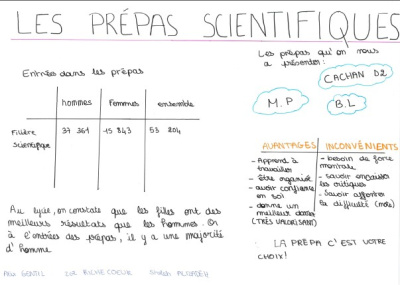 LES PRÉPAS SCIENTIFIQUES
Entrées dans les prépas
hommes Femmes ensemble
Filière 37 361 15 843 53 204
Scientifique
Au lycée, on constate que les filles ont des
meilleurs résultats que les hommes. Or
à l'entrées des prépas, il y a une majorité
d'homme
Les prépas qu'on nous
a présenter:
CACHAN D2
M.P
B.L
AVANTAGES INCONVÉNIENTS
- Apprend à
travailler
- être organisé
- avoir confiance
en soi
- donne un
meilleur dossier
(TRÈS VALORISANT)
- besoin de force
mentale
- Savoir encaisser
les critiques
- Savoir affronter
la difficulté
: LA PRÉPA C'EST VOTRE
CHOIX!